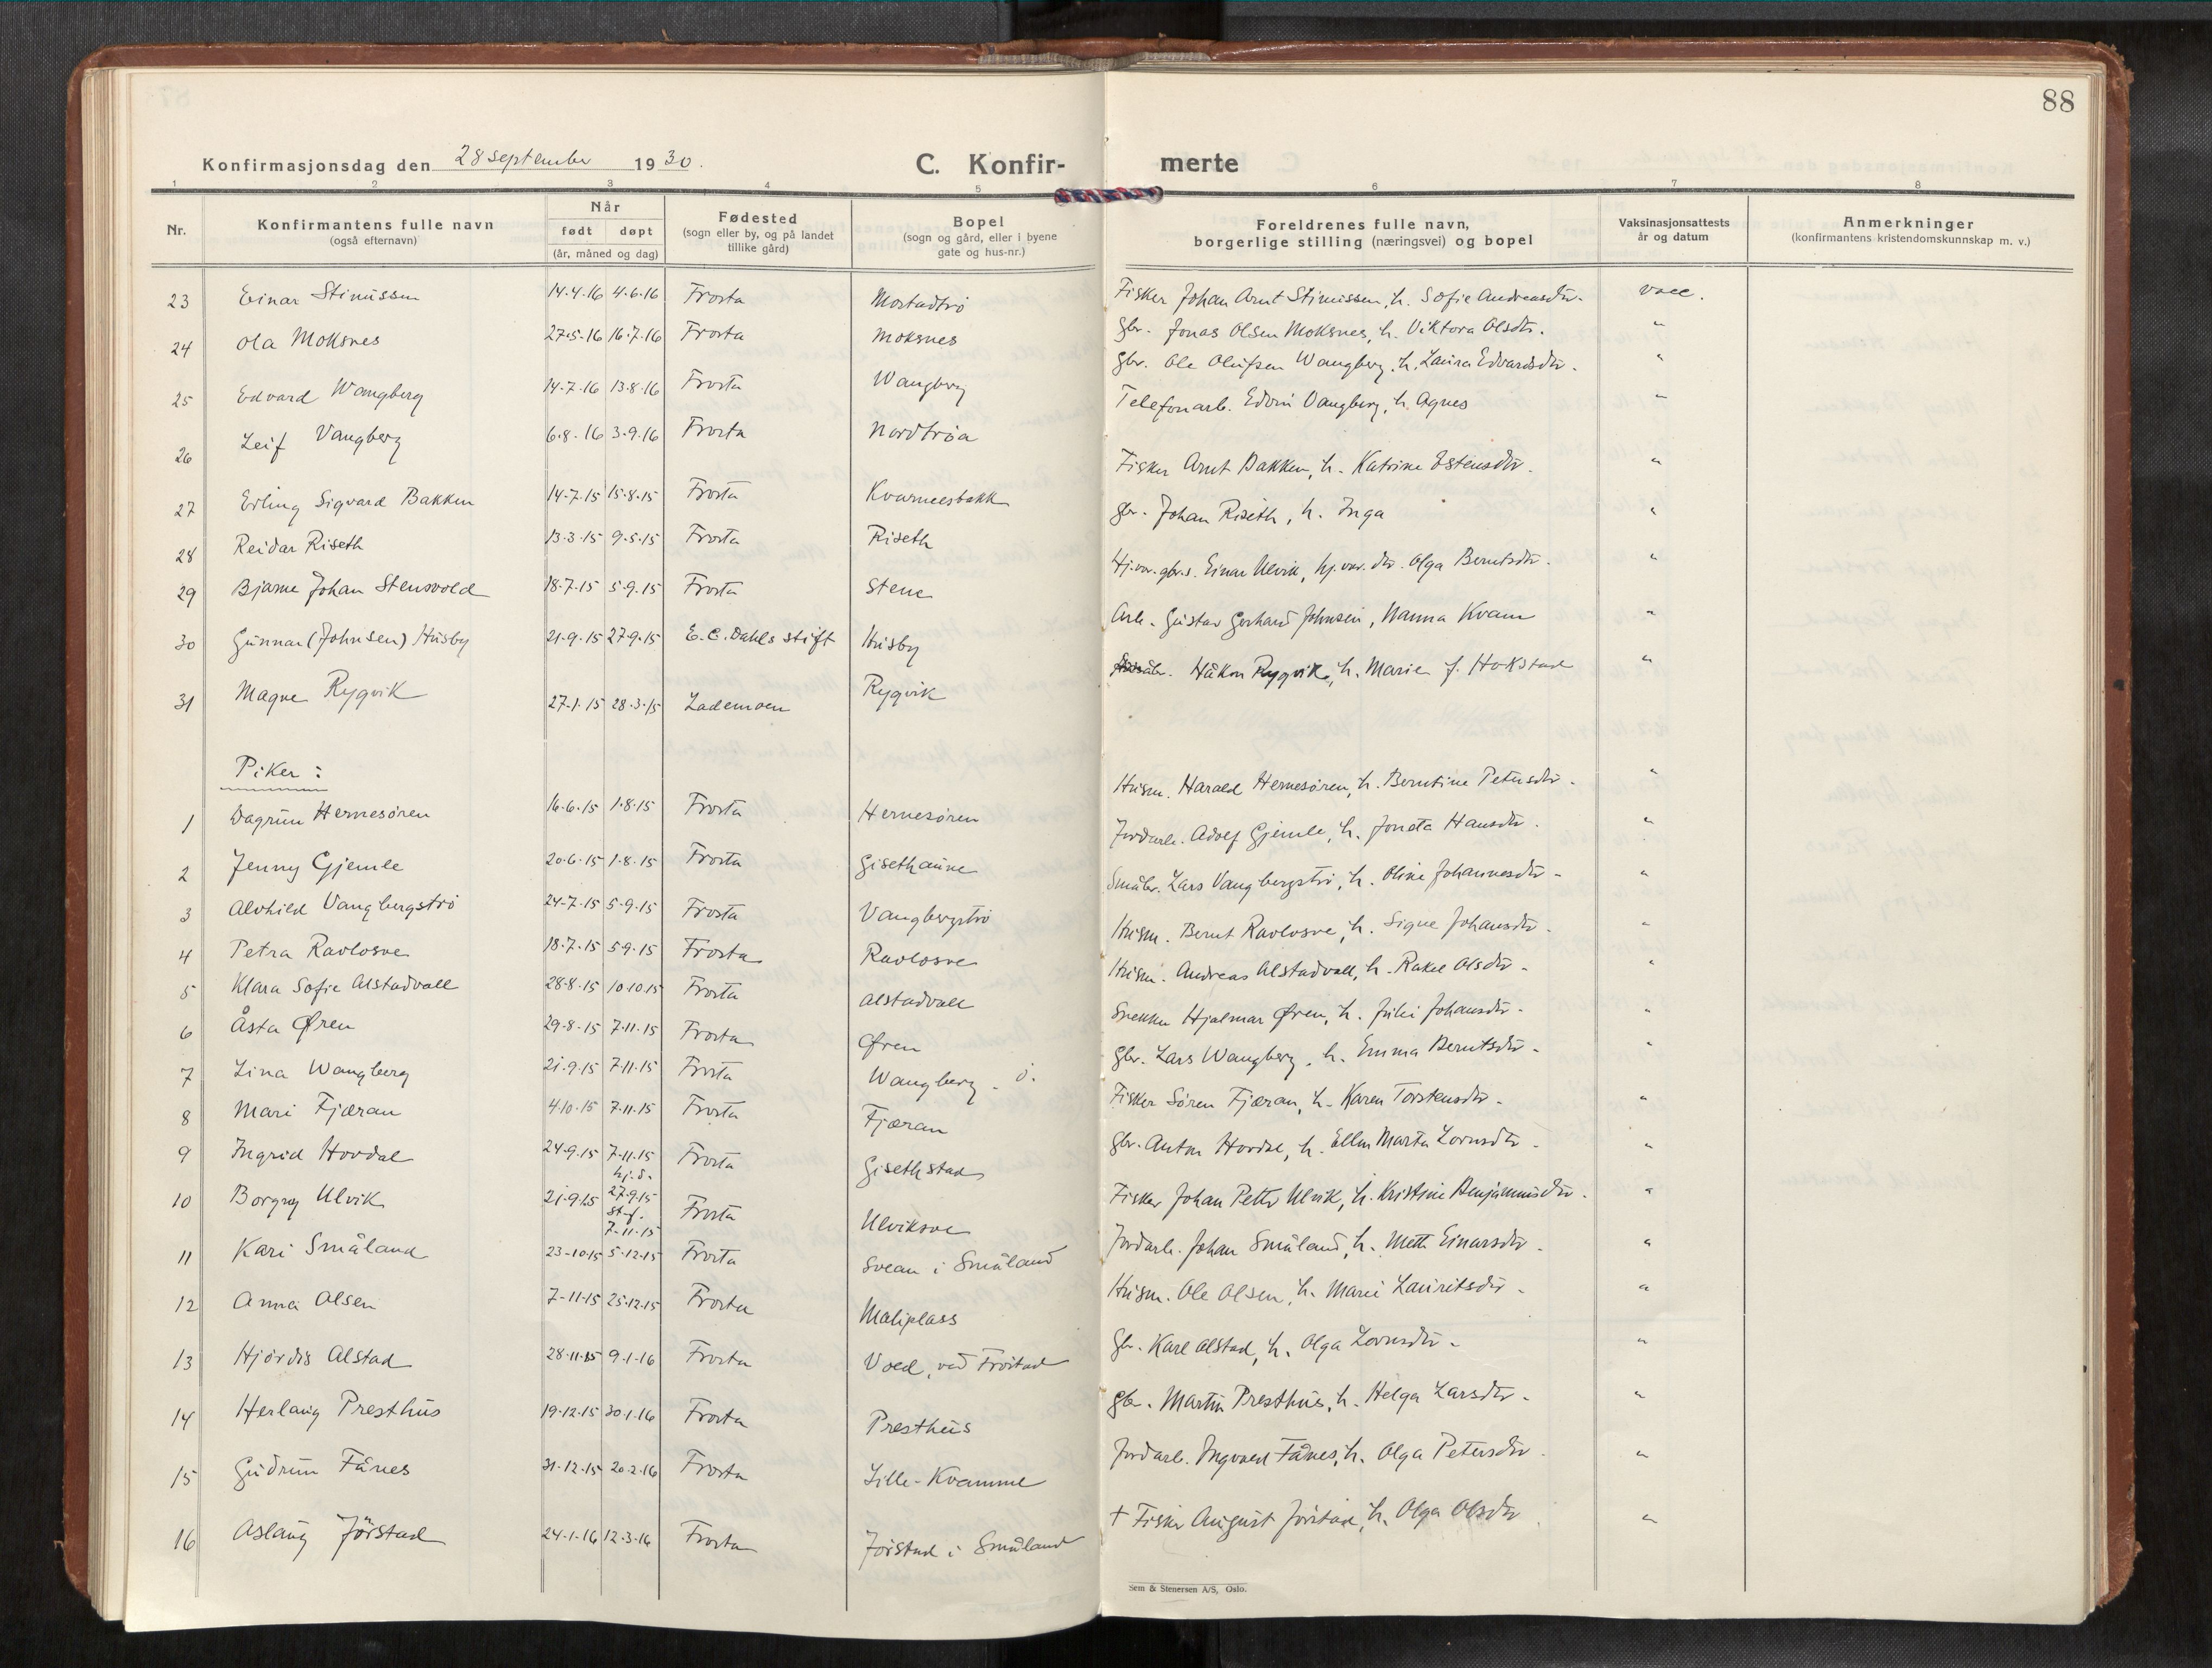 88
Konfirmasjonsdag den 28 september 1930.
C. Konfir- merte
1 2 3 4 5 6 7 8
Nr.
Konfirmantens fulle navn
(også efternavn)
Når
født døpt
(år, måned og dag)
Fødested
(sogn eller by, og på landet
tillike gård)
Bopel
(sogn og gård, eller i byene
gate og hus-nr.)
Foreldrenes fulle navn,
borgerlige stilling (næringsvei) og bopel
Vaksinasjonsattests
år og datum
Anmerkninger
(konfirmantens kristendomskunnskap m. v.)
23 Einar Stinussen 14.4.16 4.6.16 Frosta Mostadtrø Fisker Johan Arnt Stinussen, h. Sofie Andreasdtr. vacc.
24 Ola Moksnes 27.5.16 16.7.16 Frosta Moksnes Gbr. Jonas Olsen Moksnes, h. Viktora Olsdtr. "
25 Edvard Wangberg 14.7.16 13.8.16 Frosta Wangberg Gbr. Ole Olufsen Wangberg, h. Laura Edvardsdtr. "
26 Leif Vangberg 6.8.16 3.9.16 Frosta Nordtrøa Telefonarb. Edvin Vangberg, h. Agnes "
27 Erling Sigvard Bakken 14.7.15 15.8.15 Frosta Fisker Arnt Bakken, h. Katrine Estensdtr. "
28 Reidar Riseth 13.3.15 9.5.15 Frosta Riseth Gbr. Johan Riseth, h. Inga "
29 Bjarne Johan Stensvold 18.7.15 5.9.15 Frosta Stene Hj.vær. gbr.s. Einar Ulvik, hj.vær. dtr. Olga Berntsdtr. "
30 Gunnar (Johnsen) Husby 21.9.15 27.9.15 E. C. Dahls stift Husby Arb. Gustav Gerhard Johnsen, Nanna Kvam "
31 Magne Rygvik 27.1.15 28.3.15 Lademoen Rygvik Håkon Rygvik, h. Marie f. Hokstad "
Piker:
1 Dagrun Hernesøren 16.6.15 1.8.15 Frosta Hernesøren Husm. Harald Hernesøren, h. Berntine Petersdtr. "
2 Jenny Gjemle 20.6.15 1.8.15 Frosta Gisethaune Jordarb. Adolf Gjemle, h. Joneta Hansdtr. "
3 Alvhild Vangbergstrø 24.7.15 5.9.15 Frosta Vangbergstrø Småbr. Lars Vangbergstrø, h. Oline Johannesdtr. "
4 Petra Ravlosve 18.7.15 5.9.15 Frosta Ravlosve Husm. Bernt Ravlosve, h. Signe Johansdtr. "
5 Klara Sofie Alstadvall 28.8.15 10.10.15 Frosta Alstadvall Husm. Andreas Alstadvall, h. Rakel Olsdtr. "
6 Åsta Øren 29.8.15 7.11.15 Frosta Øren Snekker Hjalmar Øren, h. Juli Johansdtr. "
7 Lina Wangberg 21.9.15 7.11.15 Frosta Wangberg ö. Gbr. Lars Wangberg, h. Emma Berntsdtr. "
8 Mari Fjæran 4.10.15 7.11.15 Frosta Fjæran Fisker Søren Fjæran, h. Karen Torstensdtr. "
9 Ingrid Hovdal 24.9.15 7.11.15 Frosta Gisethstad Gbr. Anton Hovdal, h. Ellen Marta Lornsdtr. "
10 Borgny Ulvik 21.9.15 hj.d. 27.9.15 st.f. 7.11.15 Frosta Ulviksve Fisker Johan Petter Ulvik, h. Kristine Benjaminsdtr. "
11 Kari Småland 23.10.15 5.12.15 Frosta Svean i Småland Jordarb. Johan Småland, h. Mette Einarsdtr. "
12 Anna Olsen 7-11-15 25.12.15 Frosta Maliplass Husm. Ole Olsen, h. Marie Lauritsdtr. "
13 Hjørdis Alstad 28.11.15 9.1.16 Frosta Voll, ved Frøstad Gbr. Karl Alstad, h. Olga Lornsdtr. "
14 Herlaug Presthus 19.12.15 30.1.16 Frosta Presthus Gbr. Martin Presthus, h. Helga Larsdtr. "
15 Gudrun Fånes 31.12.15 20.2.16 Frosta Lille-Kvamme Jordarb. Ingvald Fånes, h. Olga Petersdtr. "
16 Aslaug Jörstad 24.1.16 12.3.16 Frosta Jörstad i Småland † Fisker August Jörstad, h. Olga Olsdtr. "
Sem & Stenersen A/S, Oslo.